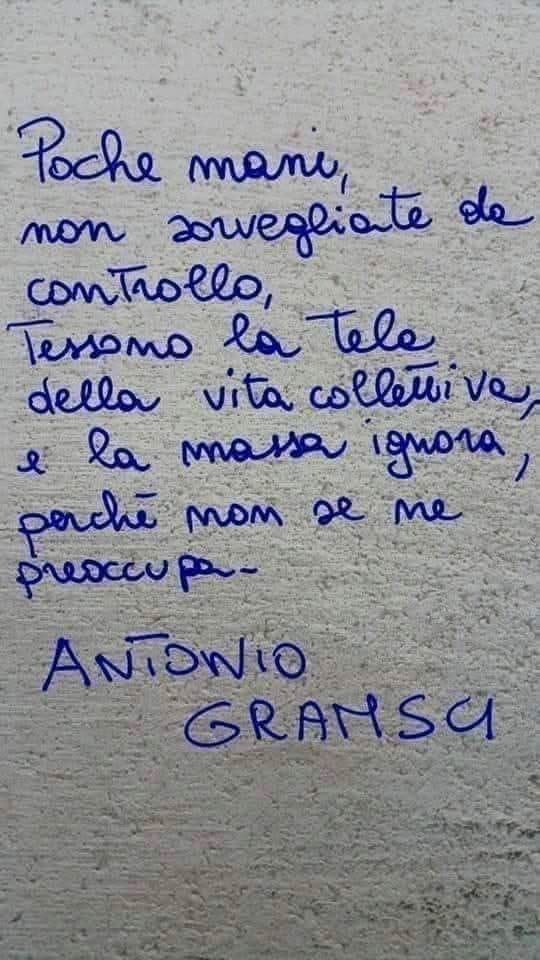 Poche mani,
non sorvegliate da
controllo,
Tessono la tela
della vita collettiva,
e la massa ignora,
perché non se ne
preoccupa-
ANTONIO
GRAMSCI